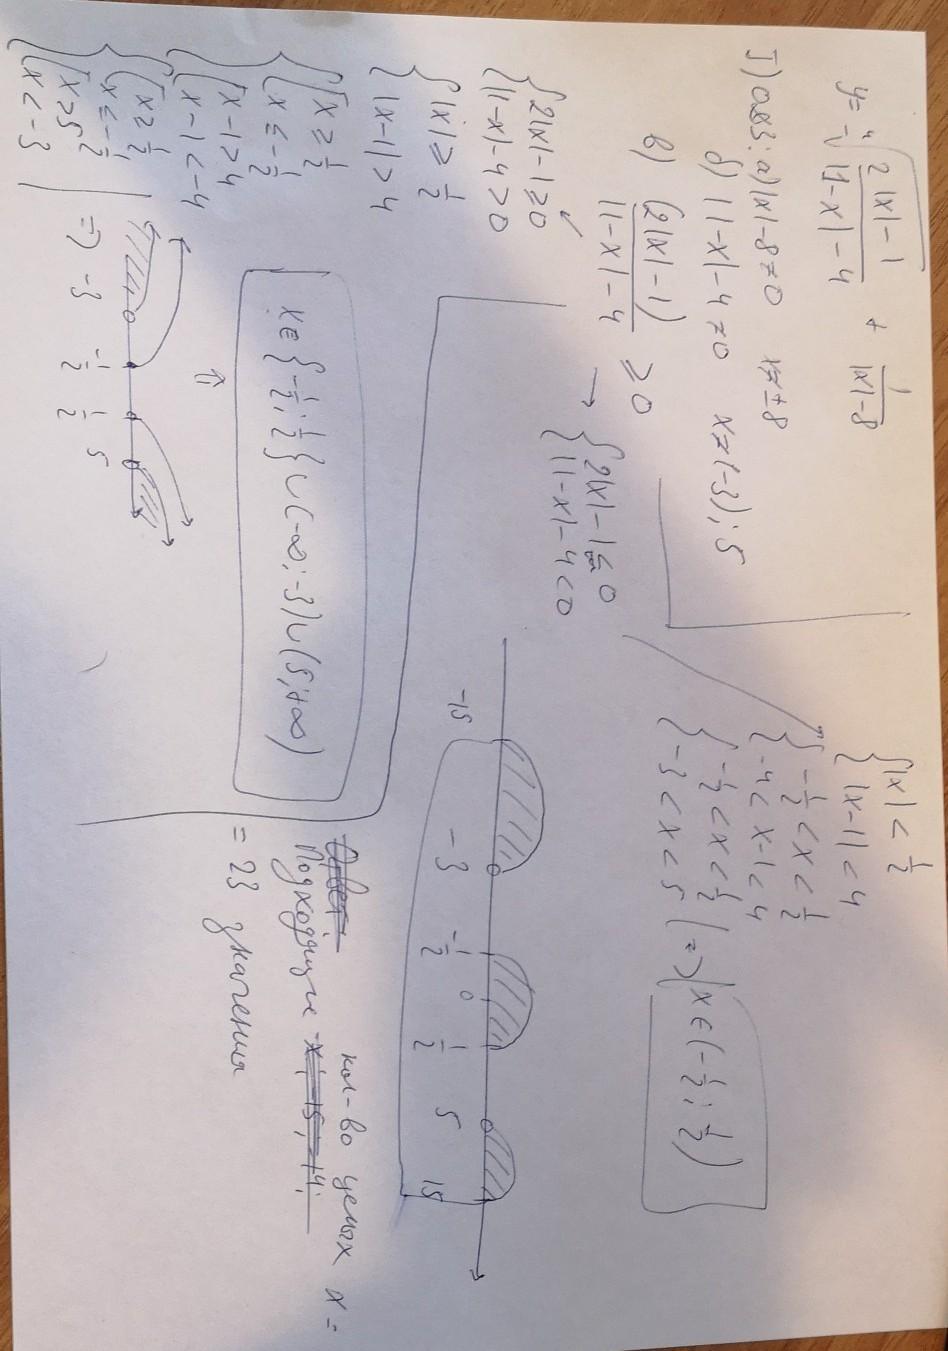 y = ⁴√((2|x| - 1)/(|1-x| - 4)) + 1/(|x|-8)
1) ОДЗ: а) |x| - 8 ≠ 0 x ≠ ±8
б) |1-x| - 4 ≠ 0 x ≠ (-3); 5
в) (2|x| - 1)/(|1-x| - 4) ≥ 0
{ 2|x| - 1 ≥ 0
{ |1-x| - 4 > 0
{ |x| ≥ 1/2
{ |x-1| > 4
{ [ x ≥ 1/2
[ x ≤ -1/2
{ [ x-1 > 4
[ x-1 < -4
{ [ x ≥ 1/2
[ x ≤ -1/2
{ [ x > 5
[ x < -3
=> -3 -1/2 1/2 5
⇑
x ∈ {-1/2; 1/2} ∪ (-∞; -3) ∪ (5; +∞)
→ { 2|x| - 1 ≤ 0
{ |1-x| - 4 < 0
{ |x| < 1/2
{ |x-1| < 4
{ -1/2 < x < 1/2
{ -4 < x-1 < 4
{ -1/2 < x < 1/2
{ -3 < x < 5 | => x ∈ (-1/2; 1/2)
-15 -3 -1/2 0 1/2 5 15
Ответ:
кол-во целых x =
Подходящие - x: -15; -14;
= 23 значения